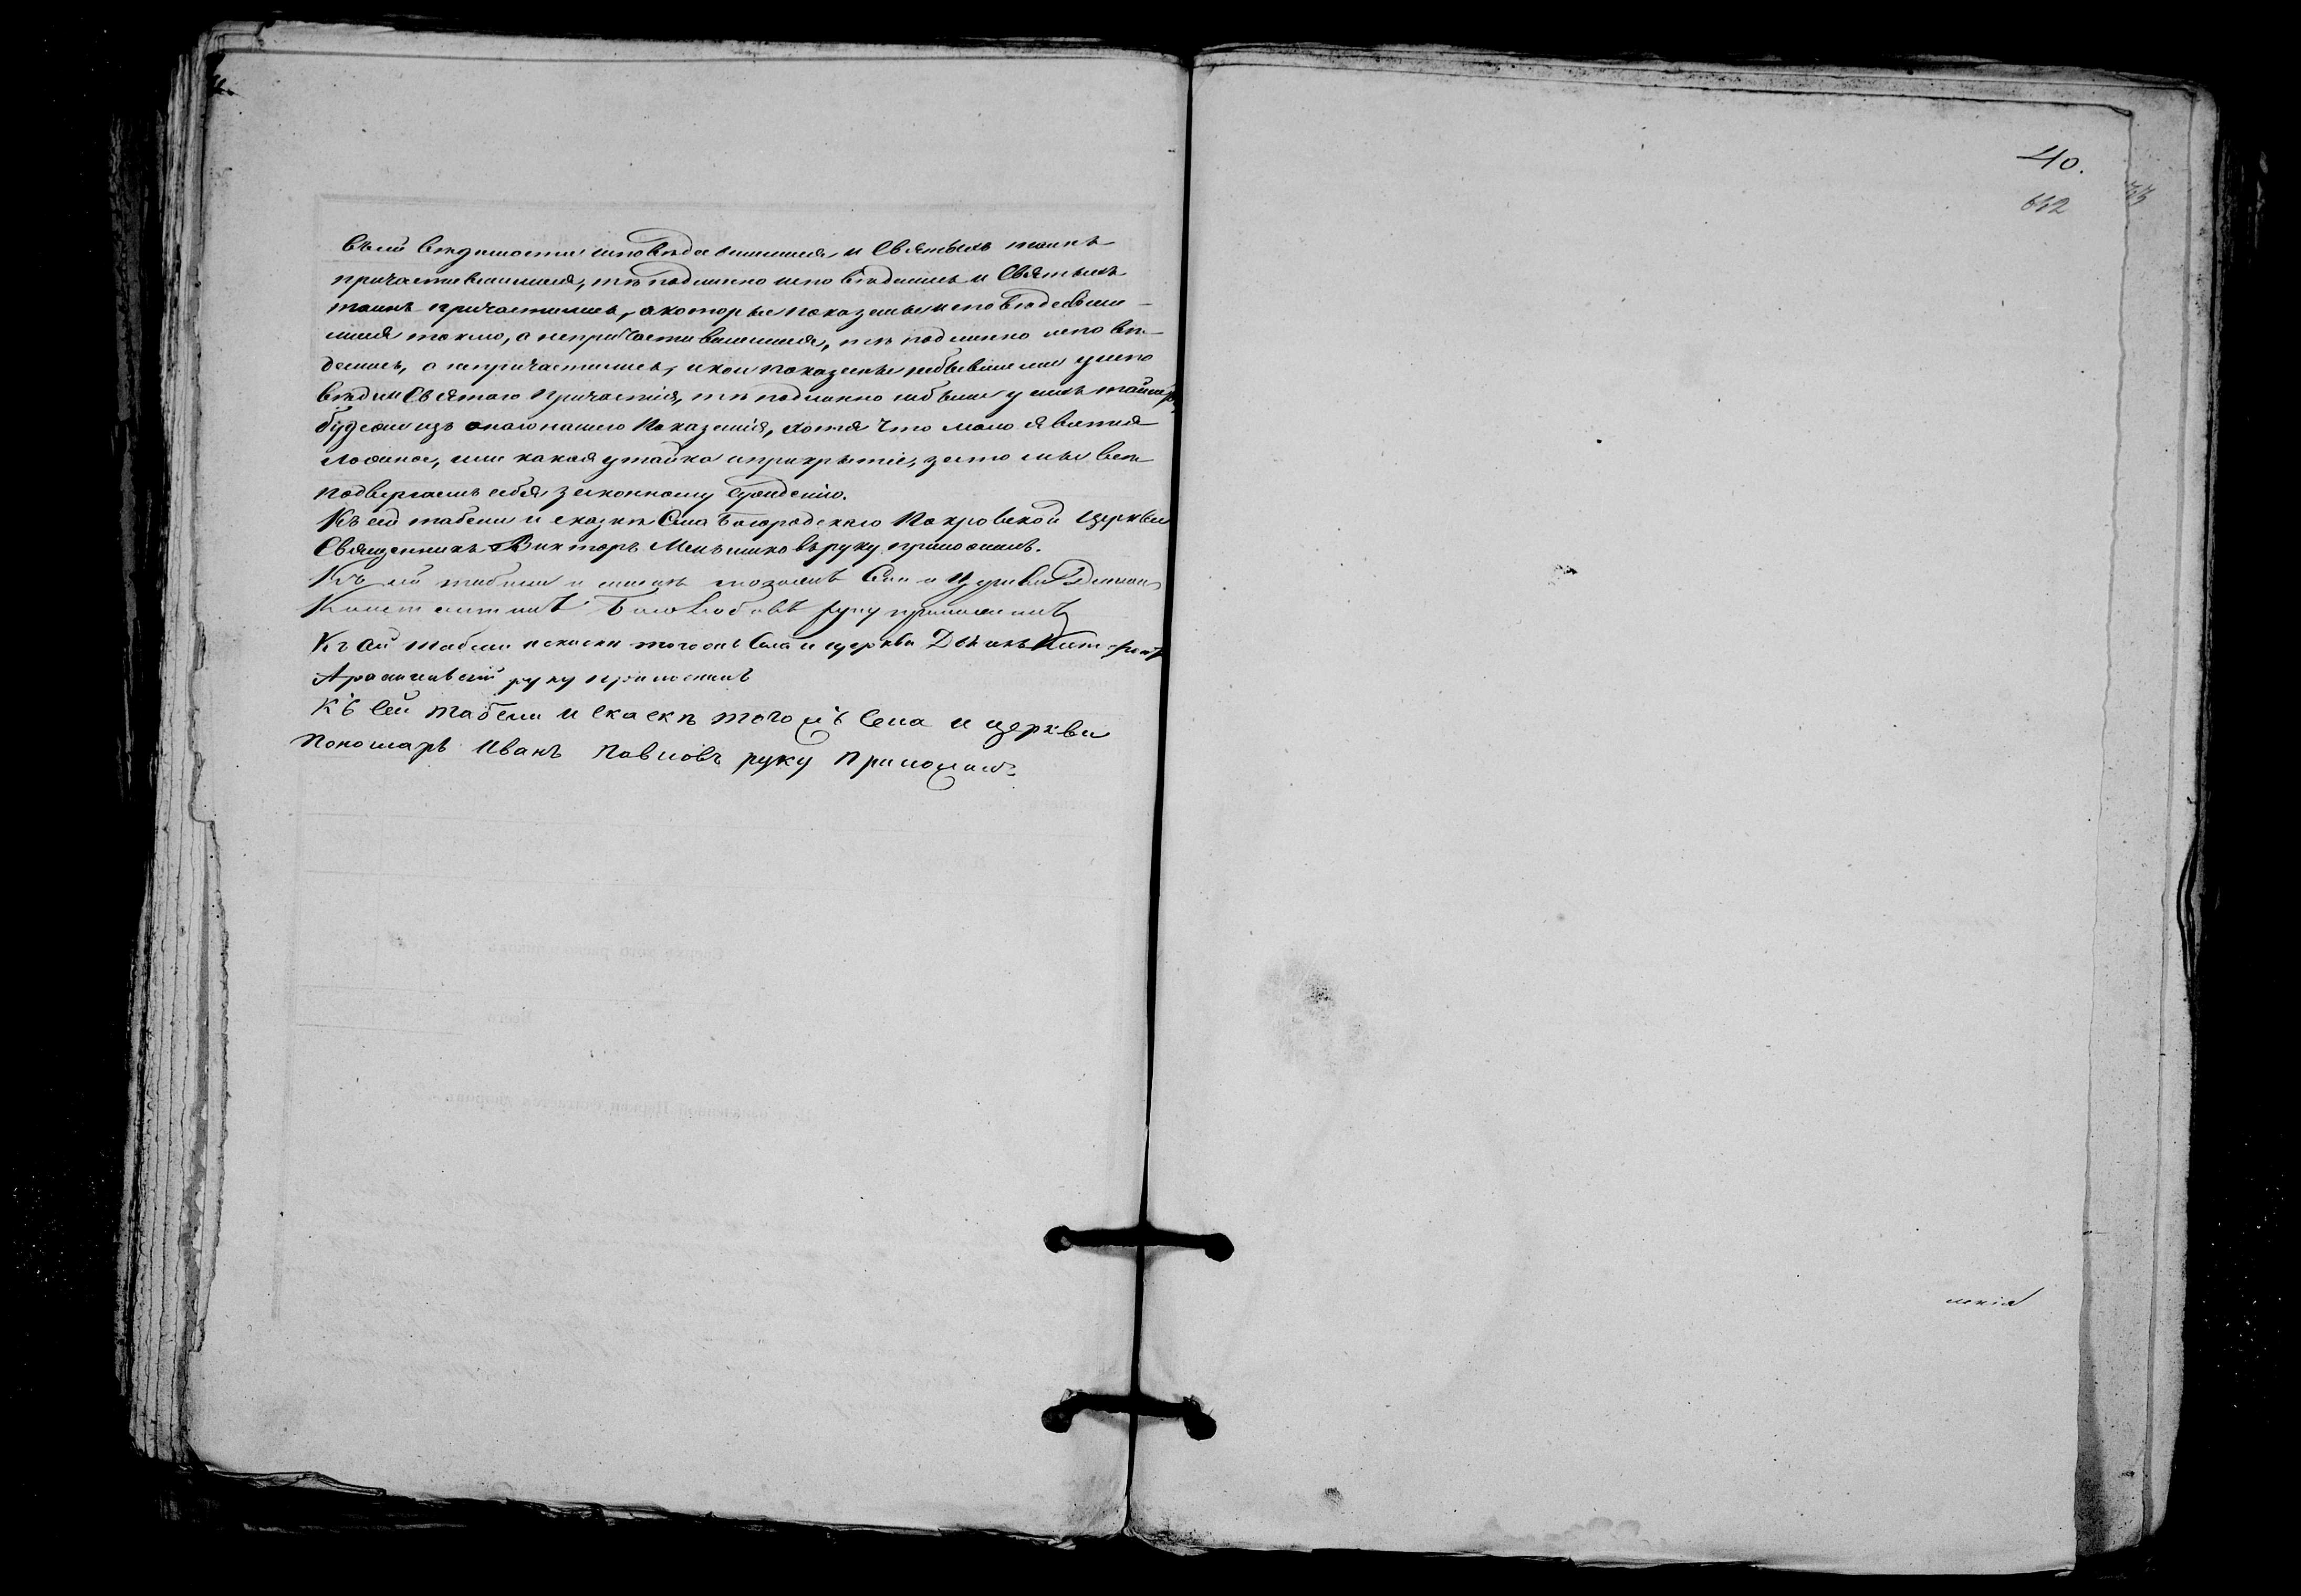 въ сей ведомости исповедавшимися и Святыхъ таинъ
причастившимися, тѣ подлинно исповѣдались и Святыхъ
таинъ причастились, а которые показаны исповѣдавши-
мися токмо, а непричастившимися, тѣ подлинно исповѣ-
дались, а непричастились, и кои показаны небывшими у испо
вѣди и Святаго Причастія, тѣ подлинно небыли у сихъ таинствъ,
буде же изъ онаго нашего показанія, хотя что мало явится
ложное, или какая утайка и прикрытіе, за то мы всѣ
подвергаемъ себя законному сужденію.
Къ сей табели и сказкѣ Села Богородскаго Покровской церкви
Священникъ Викторъ Меньшиковъ руку приложилъ.
Къ сей табели и сказкѣ тогожъ Села и Церкви Диаконъ
Константинъ Боголюбовъ руку приложилъ
Къ сей табели и скаски тогожъ Села и церкви Дьячекъ
руку приложилъ
Къ сей табели и скаскѣ тогожъ Села и церкви
Пономарь Иванъ Павловъ руку приложилъ
40.
642
33